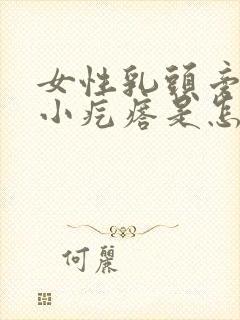 女性乳頭旁
小疙瘩是怎
何麗